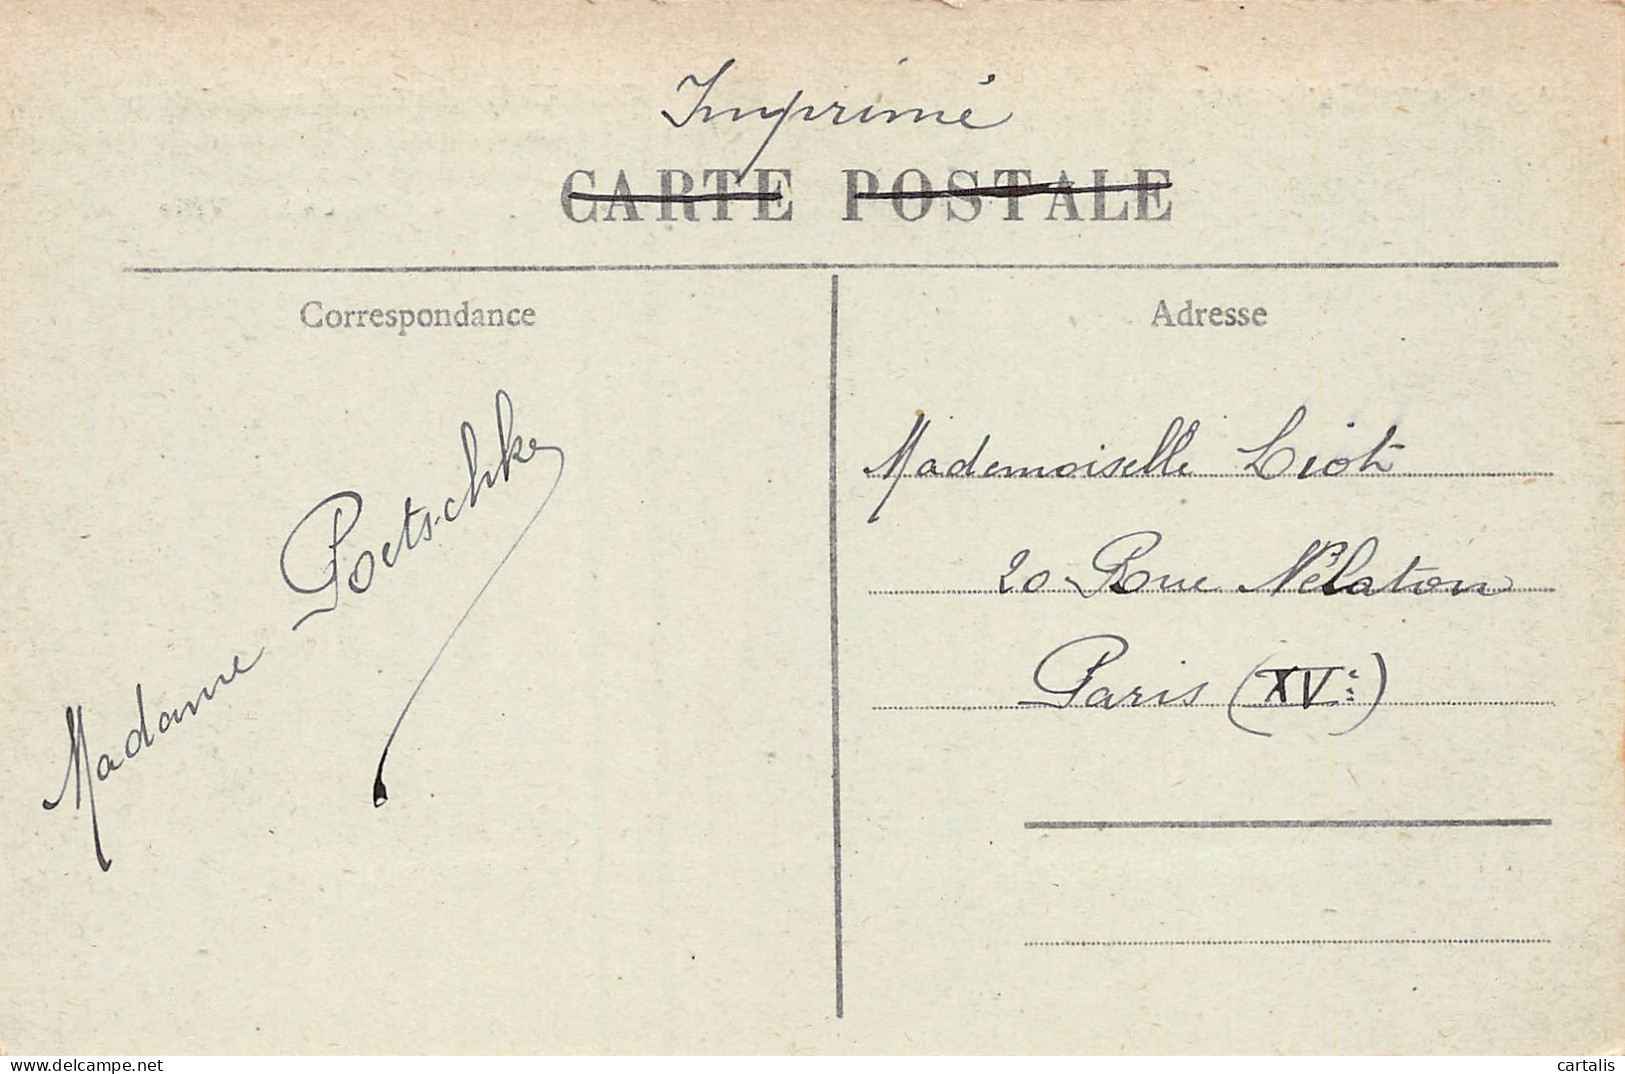 Imprimé
CARTE POSTALE
Correspondance
Madame Poetschke
Adresse
Mademoiselle Liot
20 Rue Nélaton
Paris (XVe)
www.delcampe.net
cartalis